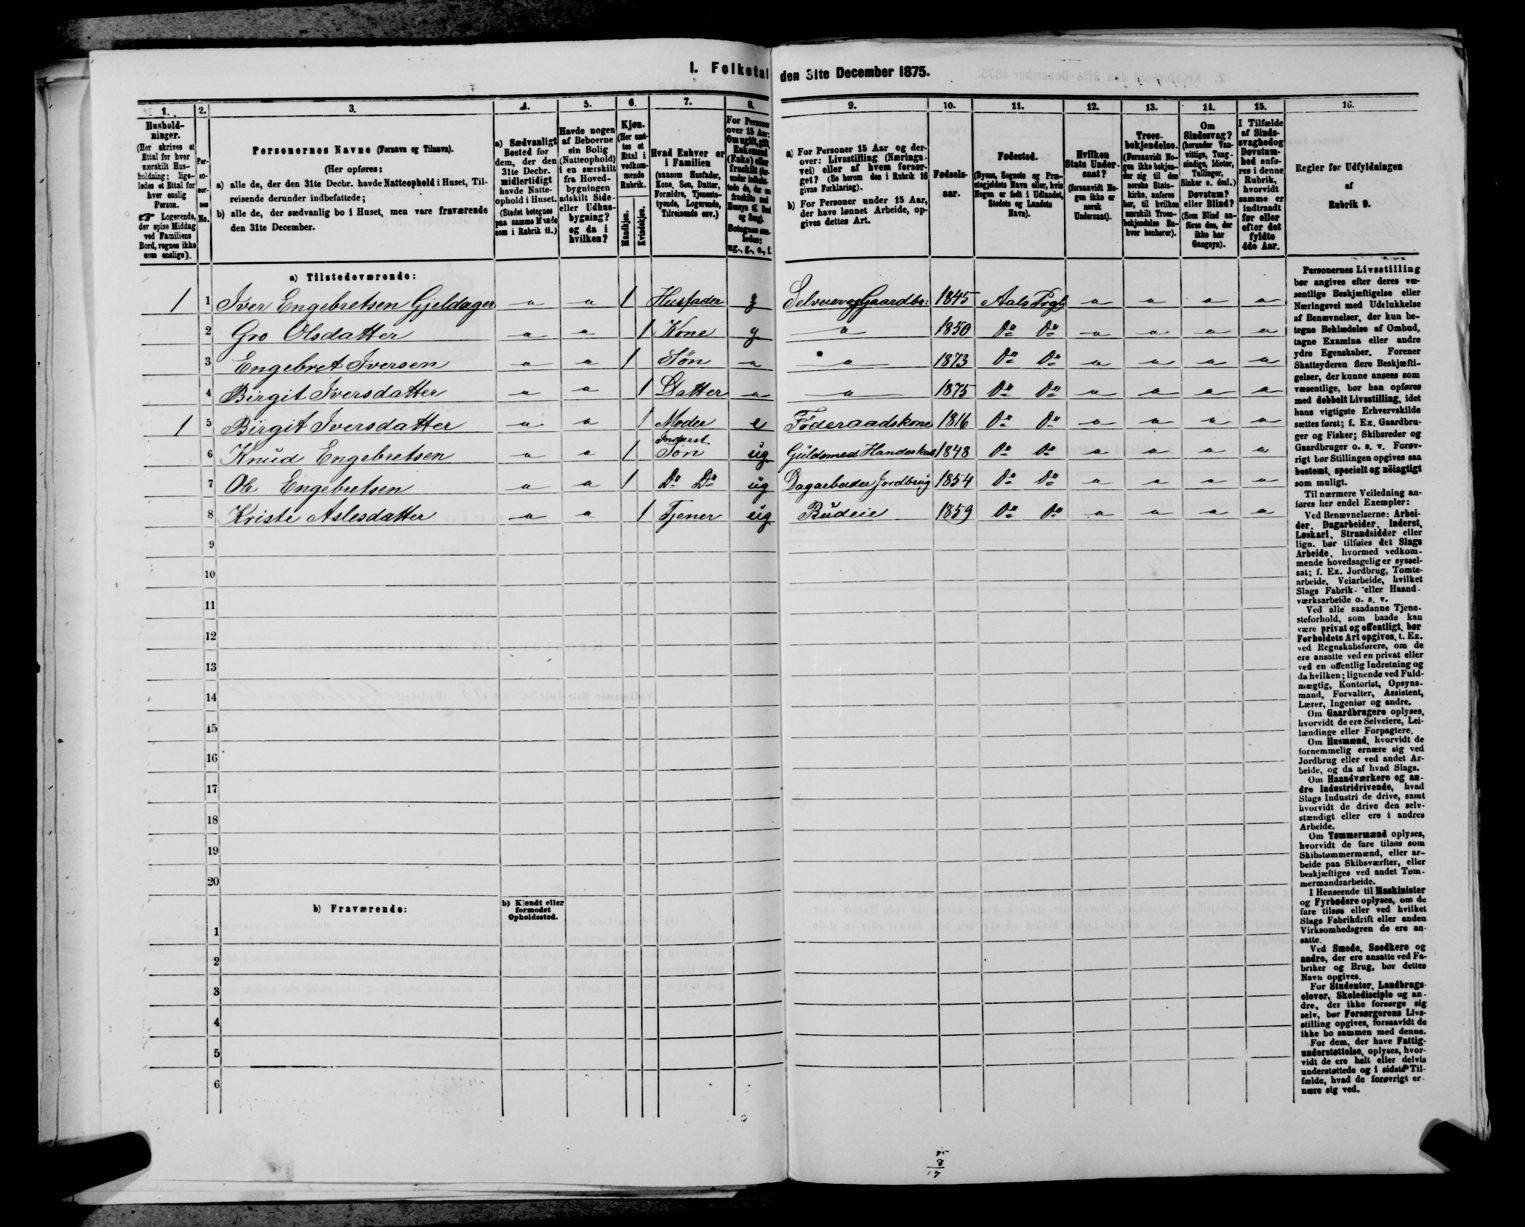 1. Folketal den 31te December 1875.
1. 2. 3. 4. 5. 6. 7. 8. 9. 10. 11. 12. 13. 14. 15. 16.
Hushold-
ninger.
(Her skrives et
Ettal for hver
særskilt Hus-
holdning; lige-
ledes et Ettal for
hver enslig
Person.
☞ Logerende,
der spise Middag
ved Familiens
Bord, regnes ikke
som enslige).
Per-
so-
ner-
nes
No.
Personernes Navne (Fornavn og Tilnavn).
(Her opføres:
a) alle de, der den 31te Decbr. havde Natteophold i Huset, Til-
reisende derunder indbefattede;
b) alle de, der sædvanlig bo i Huset, men vare fraværende
den 31te December.
a) Sædvanligt
Bosted for
dem, der den
31te Decbr.
midlertidigt
havde Natte-
ophold i Huset.
(Stedet betegnes
paa samme Maade
som i Rubrik 11.)
Havde nogen
af Beboerne
sin Bolig
(Natteophold)
i en særskilt
fra Hoved-
bygningen
adskilt Side-
eller Udhus-
bygning?
og da i
hvilken?
Kjøn.
(Her sæt-
tes et
Ettal i
vedkom-
mende
Rubrik.
Mandkjøn.
Kvindekjøn.
Hvad Enhver er
i Familien
(saasom Husfader,
Kone, Søn, Datter,
Forældre, Tjeneste-
tyende, Logerende,
Tilreisende osv.)
For Personer
over 15 Aar:
Om ugift, gift,
Enkemand
(Enke) eller
fraskilt
Betegnes saa-
ledes:
ug., g., e., f.
a) For Personer 15 Aar og der-
over: Livsstilling (Nærings-
vei) eller af hvem forsør-
get? (Se herom den i Rubrik 16
givne Forklaring).
b) For Personer under 15 Aar,
der have lønnet Arbeide, op-
gives dettes Art.
Fødsels-
aar.
Fødested.
(Byens, Sognets og Præ-
stegjeldets Navn eller, hvis
Nogen er født i Udlandet,
Stedets og Landets
Navn).
Hvilken
Stats Under-
saat?
(forsaavidt No-
gen ikke er
norsk
Undersaat).
Troes-
bekjendelse.
(Forsaavidt No-
gen ikke bekjen-
der sig til den
norske Stats-
kirke, anføres
her, til hvilken
særskilt Troes-
bekjendelse En-
hver henhører).
Om
Sindssvag?
(herunder Van-
vittige, Tung-
sindige, Idioter,
Tullinger,
Sinker o. desl.)
Døvstum?
eller Blind?
(Som Blind an-
føres den, der
ikke har
Gangsyn).
I Tilfælde
af Sinds-
svaghed og
Døvstum-
hed anfø-
res i denne
Rubrik,
hvorvidt
samme er
indtraadt
før eller
efter det
fyldte
4de Aar.
Regler for Udfyldningen
af
Rubrik 9.
a) Tilstedeværende:
1 1 Iver Engebretsen Gjeldager " " 1 Husfader g Selveier og Gaardbr: 1845 Aals Prgl " " " "
2 Gro Olsdatter " " 1 Kone g " 1850 Do Do " " " "
3 Engebret Iversen " " 1 Søn " " 1873 Do Do " " " "
4 Birgit Iversdatter " " 1 Datter " " 1875 Do Do " " " "
1 5 Birgit Iversdatter " " 1 Moder e Føderaadskone 1816 Do Do " " " "
6 Knud Engebretsen " " 1 Inderst Søn ug Guldsmed 1848 Do Do " " " "
7 Ole Engebretsen " " 1 Do Do ug Dagarbeider Jordbrug 1854 Do Do " " " "
8 Kristi Aslesdatter " " 1 Tjener ug Budeie 1859 Do Do " " " "
9
10
11
12
13
14
15
16
17
18
19
20
b) Fraværende:
b) Kjendt eller
formodet
Opholdssted.
1
2
3
4
5
6
Personernes Livsstilling
bør angives efter deres væ-
sentlige Beskjæftigelse eller
Næringsvei med Udelukkelse
af Benævnelser, der kun be-
tegne Beklædelse af Ombud,
tagne Examina eller andre
ydre Egenskaber. Forener
Skatteyderen flere Beskjæfti-
gelser, der kunne ansees som
væsentlige, bør han opføres
med dobbelt Livsstilling, idet
hans vigtigste Erhvervskilde
sættes først; f. Ex. Gaardbru-
ger og Fisker; Skibsreder og
Gaardbruger o. s. v. Forøv-
rigt bør Stillingen opgives saa
bestemt, specielt og nøiagtigt
som muligt.
Til nærmere Veiledning an-
føres her endel Exempler:
Ved Benævnelserne: Arbei-
der, Dagarbeider, Inderst,
Løskarl, Strandsidder eller
lign. bør tilføies det Slags
Arbeide, hvormed vedkom-
mende hovedsagelig er syssel-
sat; f. Ex. Jordbrug, Tomte-
arbeide, Veiarbeide, hvilket
Slags Fabrik- eller Haand-
værksarbeide o. s. v.
Ved alle saadanne Tjene-
steforhold, som baade kan
være privat og offentligt, bør
Forholdets Art opgives, t. Ex.
ved Regnskabsførere, om de
ere ansatte ved en privat eller
ved en offentlig Indretning og
da hvilken; lignende ved Fuld-
mægtig, Kontorist, Opsyns-
mand, Forvalter, Assistent,
Lærer, Ingeniør og andre.
Om Gaardbrugere oplyses,
hvorvidt de ere Selveiere, Lei-
lændinge eller Forpagtere.
Om Husmænd, hvorvidt de
fornemmelig ernære sig ved
Jordbrug eller ved andet Ar-
beide, og da af hvad Slags.
Om Haandværkere og an-
dre Industridrivende, hvad
Slags Industri de drive, samt
hvorvidt de drive den selv-
stændigt eller ere i andres
Arbeide.
Om Tømmermænd oplyses,
hvorvidt de fare tilsøs som
Skibstømmermænd, eller ar-
beide paa Skibsværfter, eller
beskjæftiges ved andet Tøm-
mermandsarbeide.
I Henseende til Maskinister
og Fyrbødere oplyses, om de
fare tilsøs eller ved hvilket
Slags Fabrikdrift eller anden
Virksomhedsgren de ere an-
satte.
Ved Smede, Snedkere og
andre, der ere ansatte ved Fa-
briker og Brug, bør dettes
Navn opgives.
For Studenter, Landbrugs-
elever, Skoledisciple og an-
dre, der ikke forsørge sig
selv, bør Forsørgerens Livs-
stilling opgives, forsaavidt de
ikke bo sammen med denne.
For dem, der have Fattig-
understøttelse, oplyses, hvor-
vidt de ere helt eller delvis
understøttede og i sidste Til-
fælde, hvad de forøvrigt er-
nære sig ved.